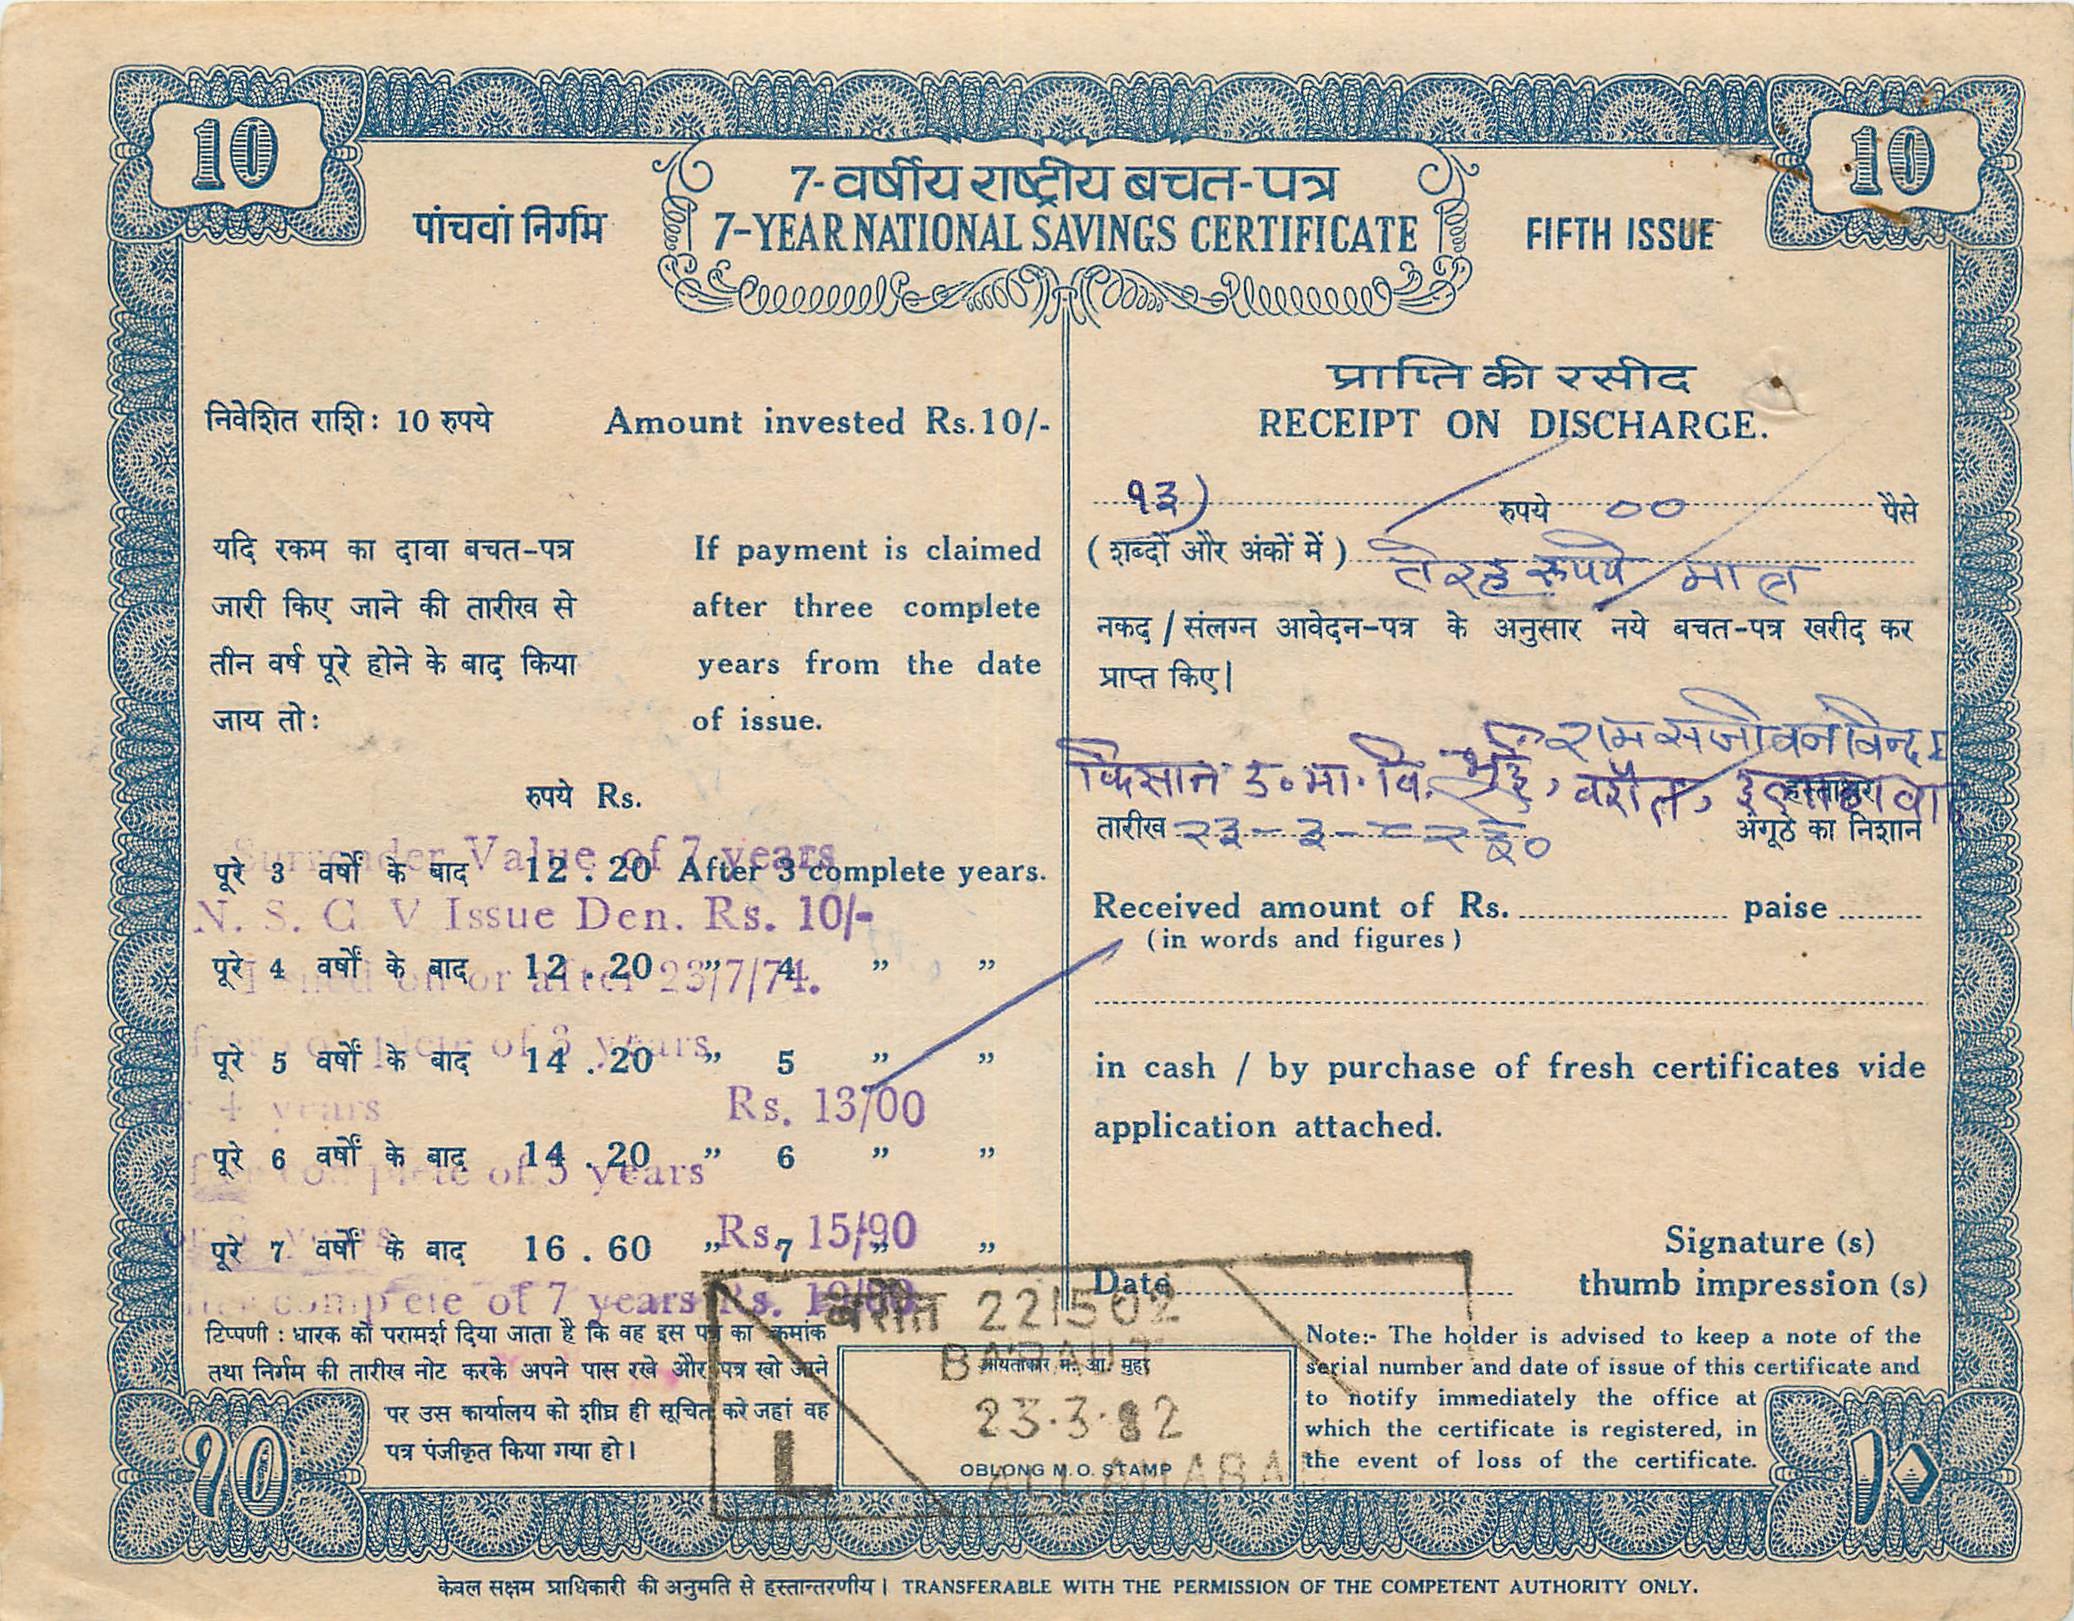 10
10
7-वर्षीय राष्ट्रीय बचत-पत्र
पांचवां निर्गम
7-YEAR NATIONAL SAVINGS CERTIFICATE
FIFTH ISSUE
निवेशित राशि: 10 रुपये
Amount invested Rs.10/-
यदि रकम का दावा बचत-पत्र
जारी किए जाने की तारीख से
तीन वर्ष पूरे होने के बाद किया
जाय तो:
If payment is claimed
after three complete
years from the date
of issue.
रुपये Rs.
पूरे 3 वर्षों के बाद 12.20 After 3 complete years.
पूरे 4 वर्षों के बाद 12.20 ” 4 ” ”
पूरे 5 वर्षों के बाद 14.20 ” 5 ” ”
पूरे 6 वर्षों के बाद 14.20 ” 6 ” ”
पूरे 7 वर्षों के बाद 16.60 ” 7 ” ”
Surrender Value of 7 years
N. S. C V Issue Den. Rs. 10/-
Issued on or after 23/7/74.
complete of 3 years
or 4 years Rs. 13/00
complete of 5 years
Rs. 15/90
complete of 7 years Rs.
टिप्पणी : धारक को परामर्श दिया जाता है कि वह इस पत्र का क्रमांक
तथा निर्गम की तारीख नोट करके अपने पास रखे और पत्र खो जाने
पर उस कार्यालय को शीघ्र ही सूचित करे जहां वह
पत्र पंजीकृत किया गया हो।
प्राप्ति की रसीद
RECEIPT ON DISCHARGE.
१३) रुपये ०० पैसे
(शब्दों और अंकों में) तेरह रूपये मात्र
नकद / संलग्न आवेदन-पत्र के अनुसार नये बचत-पत्र खरीद कर
प्राप्त किए।
राम सजीवन
किसान उ० मा० वि०
हस्ताक्षर
तारीख २३-३-८२
अंगूठे का निशान
Received amount of Rs. paise
(in words and figures)
in cash / by purchase of fresh certificates vide
application attached.
Signature (s)
Date thumb impression (s)
Note:- The holder is advised to keep a note of the
serial number and date of issue of this certificate and
to notify immediately the office at
which the certificate is registered, in
the event of loss of the certificate.
बरौत 221502
BARAUT
आयताकार म. आ. मुहर
23.3.82
L
OBLONG M.O. STAMP
ALLAHABAD
१०
१०
केवल सक्षम प्राधिकारी की अनुमति से हस्तान्तरणीय। TRANSFERABLE WITH THE PERMISSION OF THE COMPETENT AUTHORITY ONLY.